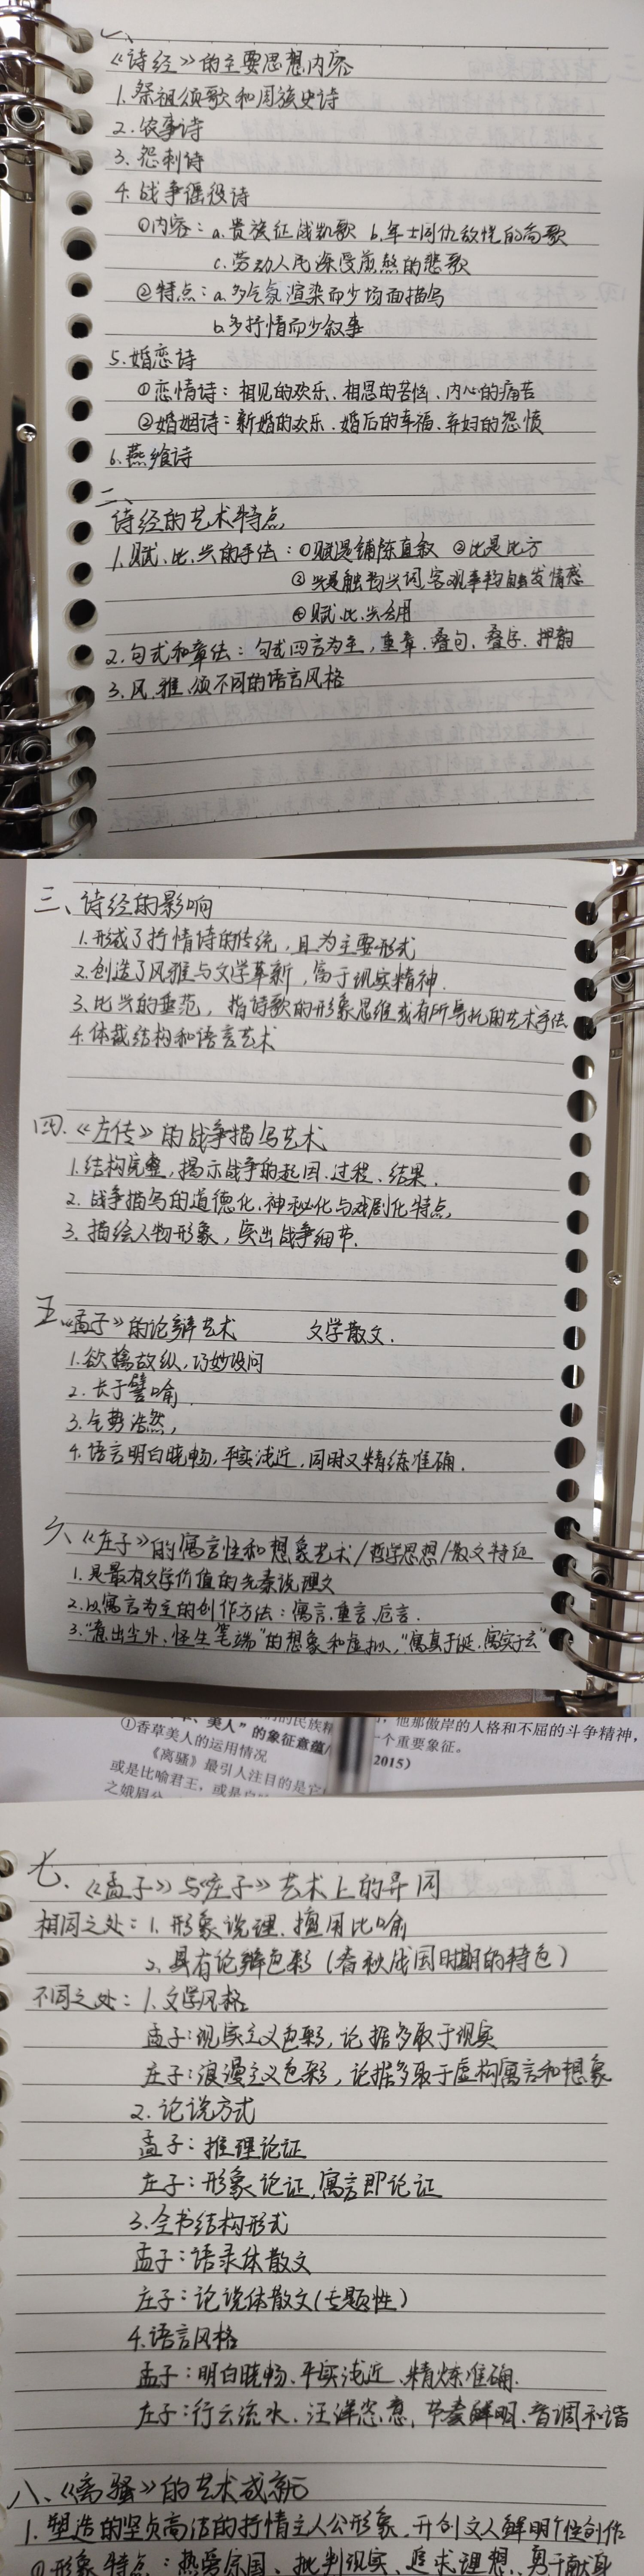 一、
《诗经》的主要思想内容
1.祭祖颂歌和周族史诗
2.农事诗
3.怨刺诗
4.战争徭役诗
①内容：a.贵族征战凯歌 b.军士同仇敌忾的高歌
c.劳动人民深受煎熬的悲歌
②特点：a.多气氛渲染而少场面描写
b.多抒情而少叙事
5.婚恋诗
①恋情诗：相见的欢乐、相思的苦恼、内心的痛苦
②婚姻诗：新婚的欢乐、婚后的幸福、弃妇的怨愤
6.燕飨诗
二、
诗经的艺术特点
1.赋、比、兴的手法：①赋是铺陈直叙 ②比是比方
③兴是触物兴词，客观事物触发情感
④赋、比、兴合用
2.句式和章法：句式四言为主，重章、叠句、叠字、押韵
3.风、雅、颂不同的语言风格
三、诗经的影响
1.形成了抒情诗的传统，且为主要形式
2.创造了风雅与文学革新，富于现实精神.
3.比兴的垂范，指诗歌的形象思维或有所寄托的艺术手法
4.体裁结构和语言艺术
四.《左传》的战争描写艺术
1.结构完整，揭示战争的起因、过程、结果.
2.战争描写的道德化、神秘化与戏剧化特点
3.描绘人物形象，突出战争细节.
五.《孟子》的论辩艺术 文学散文.
1.欲擒故纵，巧妙设问
2.长于譬喻
3.气势浩然，
4.语言明白晓畅，平实浅近，同时又精练准确.
六、《庄子》的寓言性和想象艺术/哲学思想/散文特征
1.是最有文学价值的先秦说理文
2.以寓言为主的创作方法：寓言、重言、卮言.
3."意出尘外、怪生笔端"的想象和虚拟，"寓真于诞，寓实于玄"
美人"的象征意蕴
①香草美人的运用情况
《离骚》最引人注目的是它
或是比喻君王，或是自
之娥眉
的民族精
，他那傲岸的人格和不屈的斗争精神，
一个重要象征。
2015）
七、《孟子》与《庄子》艺术上的异同
相同之处：1.形象说理、擅用比喻
2.具有论辩色彩（春秋战国时期的特色）
不同之处：1.文学风格
孟子：现实主义色彩，论据多取于现实
庄子：浪漫主义色彩，论据多取于虚构寓言和想象
2.论说方式
孟子：推理论证
庄子：形象论证，寓言即论证
3.全书结构形式
孟子：语录体散文
庄子：论说体散文（专题性）
4.语言风格
孟子：明白晓畅、平实浅近、精炼准确.
庄子：行云流水、汪洋恣意，节奏鲜明、音调和谐
八、《离骚》的艺术成就
1.塑造的坚贞高洁的抒情主人公形象，开创文人鲜明个性创作
①形象特点：热爱祖国、批判现实、追求理想、勇于献身